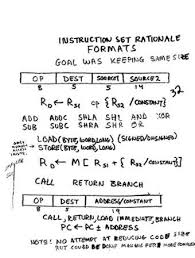 INSTRUCTION SET RATIONALE
FORMATS
GOAL WAS KEEPING SAME SIZE
OP DEST SOURCE1 SOURCE2
8 5 5 14
32
RD ← RS1 OP {RS2 /CONSTANT}
ADD ADDC SHLA SHL AND XOR
SUB SUBC SHRA SHR OR
LOAD (BYTE, WORD, LONG) (SIGNED/UNSIGNED)
STORE (BYTE, WORD, LONG)
RD ← M[RS1 + {RS2/CONSTANT}]
CALL RETURN BRANCH
OP DEST ADDRESS/CONSTANT
8 5 19
CALL, RETURN, LOAD IMMEDIATE, BRANCH
PC ← PC ± ADDRESS
NOTE: NO ATTEMPT AT REDUCING CODE SIZE
BUT COULD BE DONE